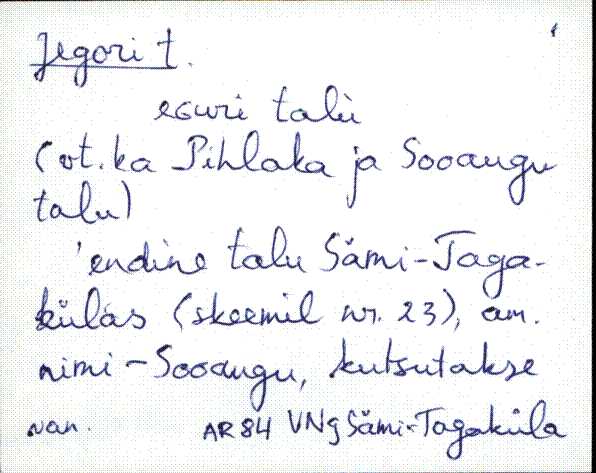 Jegori t.
eGuri talu
(vt. ka Pihlaka ja Sooaugu
talu)
'endine talu Sämi-Taga-
külas (skeemil nr. 23), am.
nimi - Sooaugu, kutsutakse
van. AR 84 VNg Sämi-Tagaküla